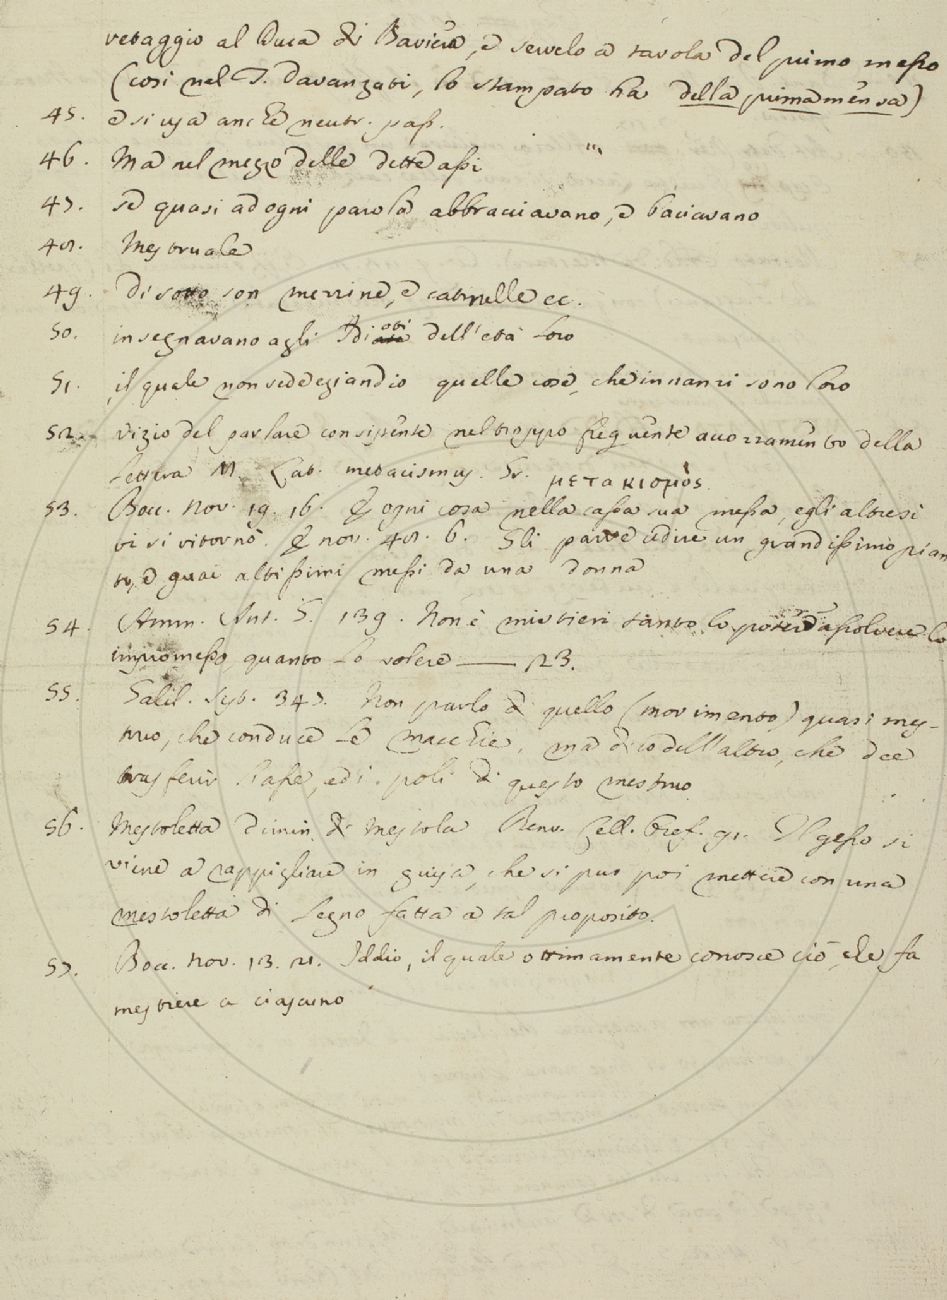 vetaggio al Duca di Baviera, e servelo a tavola del primo messo
(così nel T. Davanzati, lo stampato ha della prima mensa)
45. e si usa anche neutr. pass.
46. Ma nel mezzo delle dette assi
47. se quasi ad ogni parola abbracciavano, e baciavano
48. Mestruale
49. Di sotto son merrine, e catrelle ec.
50. insegnavano agli Idioti dell'età loro
51. il quale non vede eziandio quelle cose, che innanzi sono loro
52. vizio del parlare consistente nel troppo frequente accozzamento della
lettera M. Lat. metacismus. Gr. μετακισμός.
53. Bocc. Nov. 19. 16. E ogni cosa nella cassa sua messa, egli altresì
vi si ritornò. E nov. 48. 6. Gli parve udire un grandissimo pian
to, e guai altissimi messi da una donna
54. Amm. Ant. G. 139. Non è mistieri tanto lo potere assolvere lo
impromesso quanto lo volere —— 123.
55. Galil. Sist. 347. Non parlo di quello (movimento) quasi mes-
truo, che conduce le macchie, ma dico dell'altro, che dee
trasferir l'asse, ed i poli di questo mestruo
56. Mestoletta Dimin. di Mestola Benv. Cell. Oref. 91. Il gesso si
viene a rappigliare in guisa, che si può poi mettere con una
mestoletta di legno fatta a tal proposito.
57. Bocc. Nov. 13. 21. Iddio, il quale ottimamente conosce ciò, che fa
mestiere a ciascuno